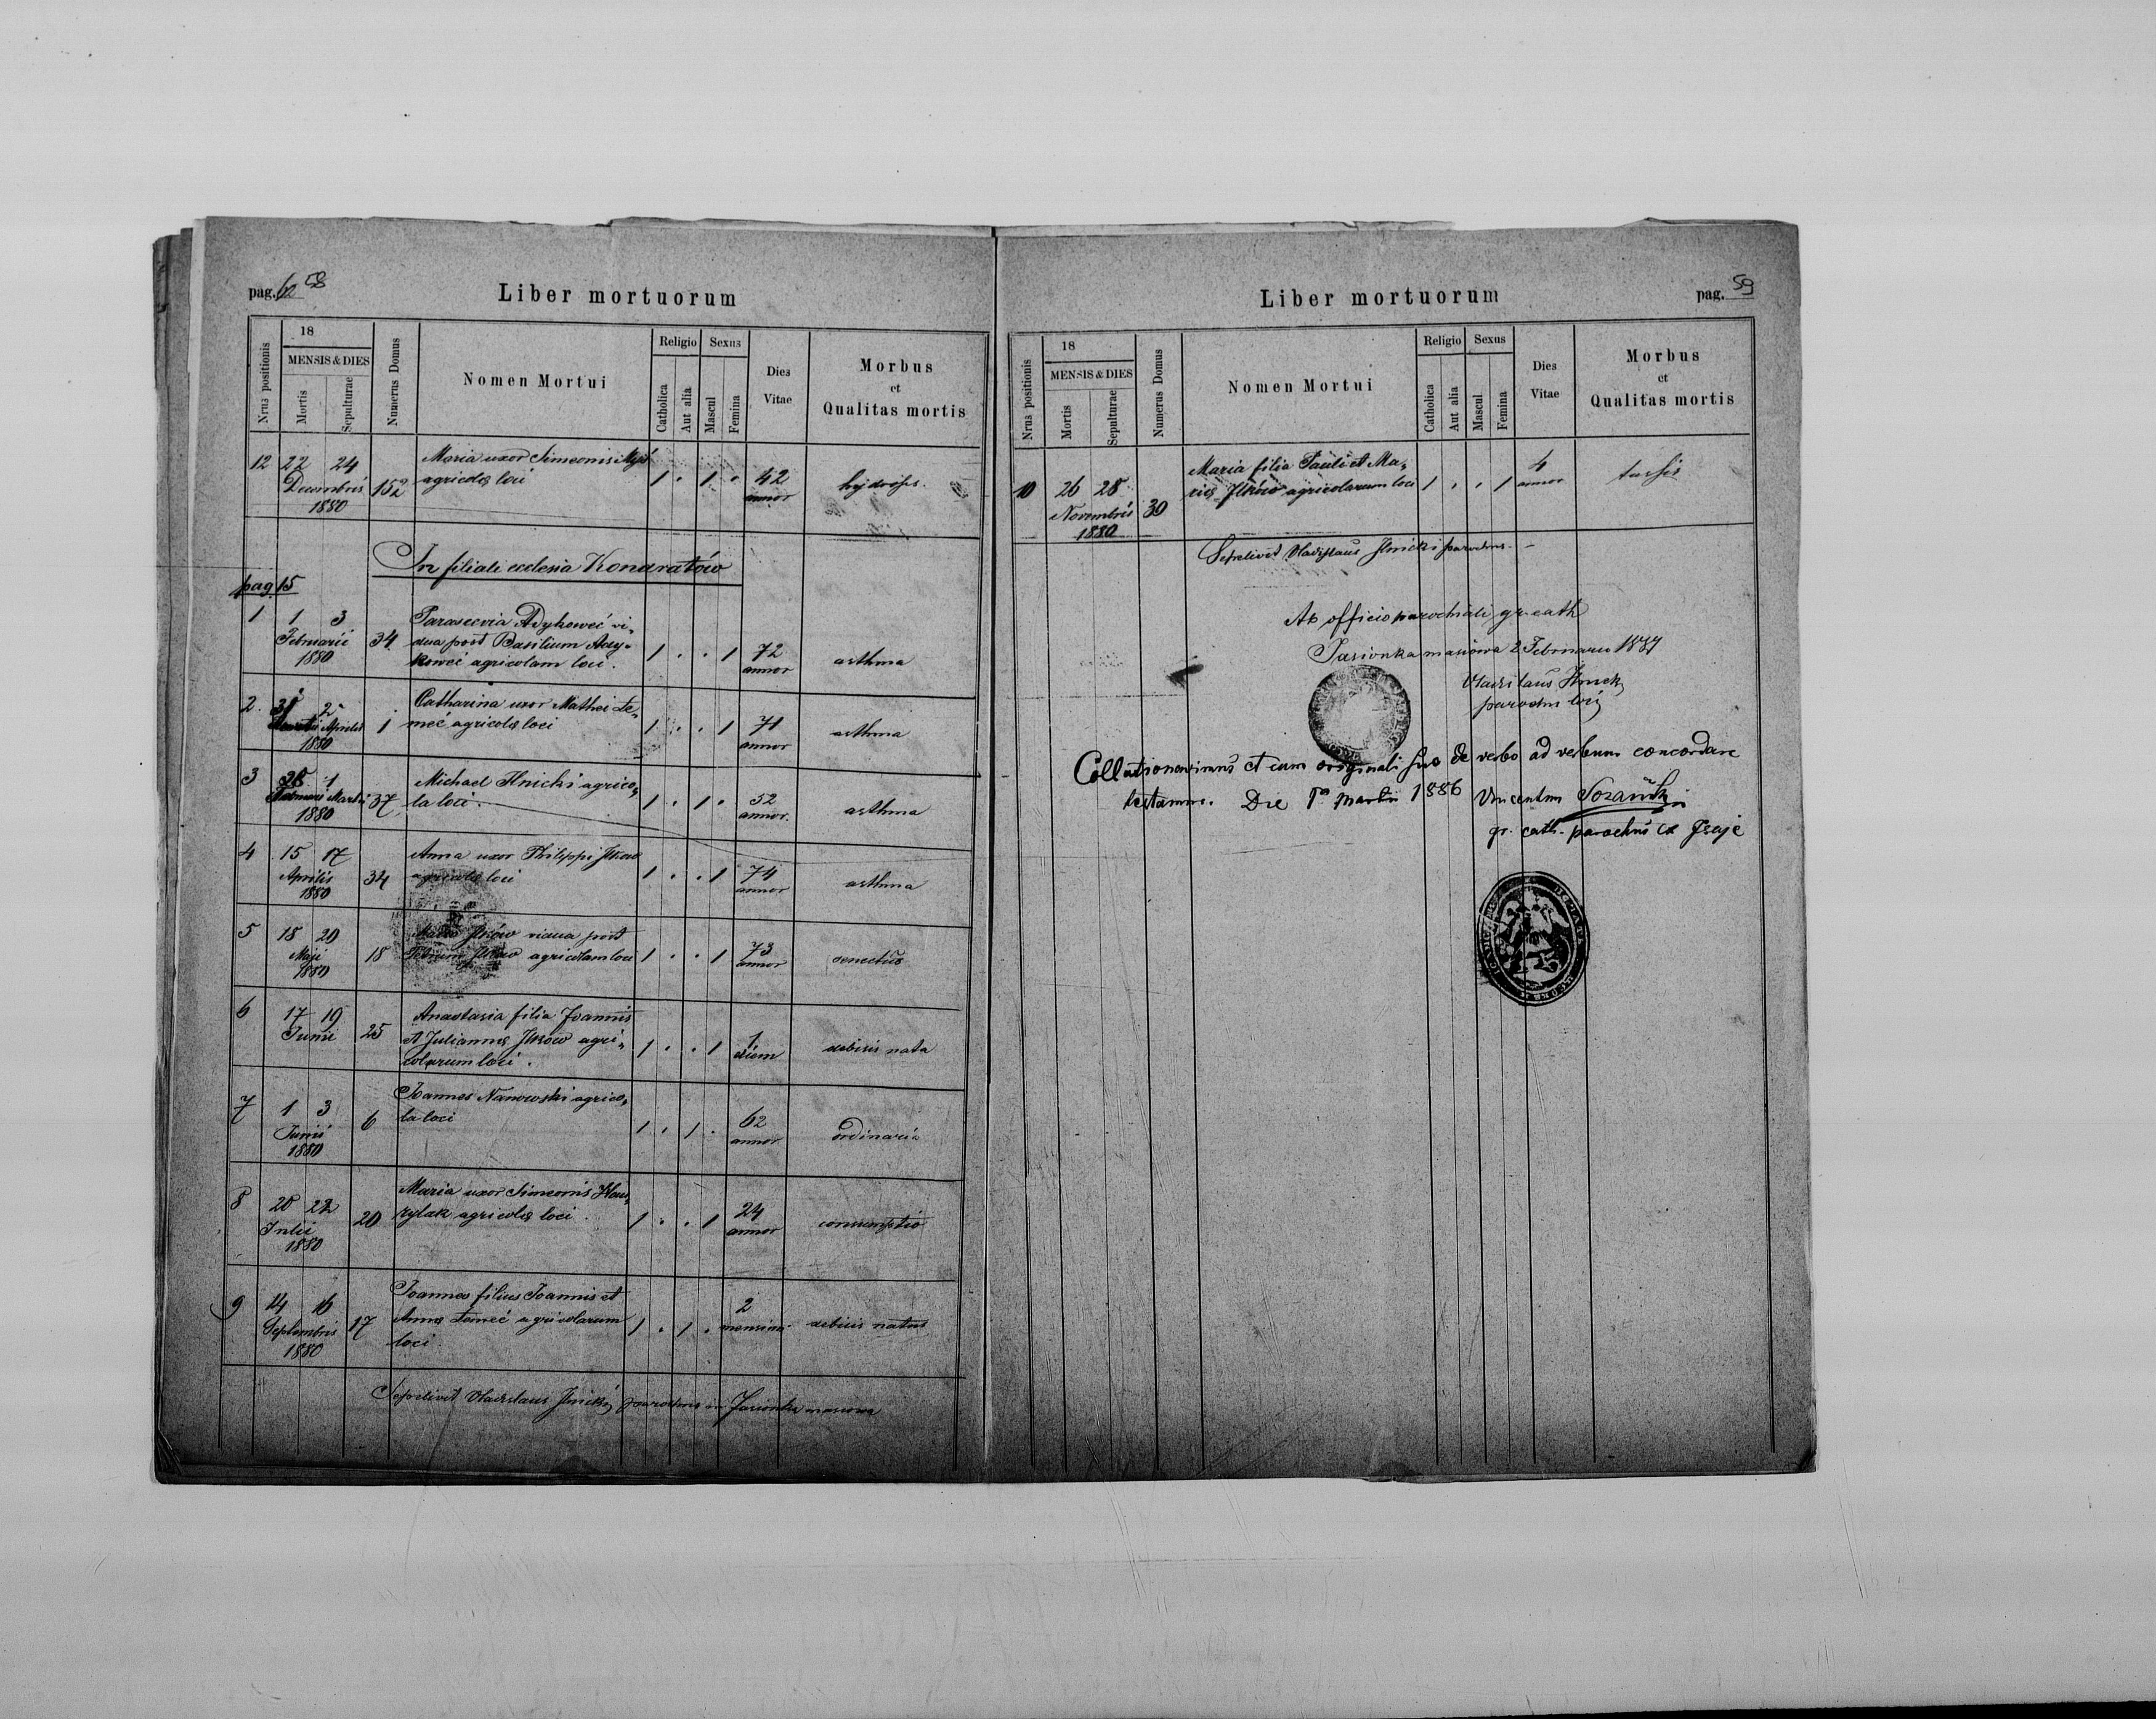 pag. 62 58
Liber mortuorum
Nrus positionis
18
MENSIS & DIES
Mortis
Sepulturae
Numerus Domus
Nomen Mortui
Religio
Catholica
Aut alia
Sexus
Mascul
Femina
Dies
Vitae
Morbus
et
Qualitas mortis
12 22 24 Maria uxor Simeonis
Decembris 152 agricolę loci 1 . 1 . 42 hydrops.
1880 annor
In filiali ecclesia Kondratów
pag. 15
1 1 3 Parascevia Adykoweć vi-
Februarii 34 dua post Basilium Ady-
1880 koweć agricolam loci. 1 . . 1 72 asthma
annor
2. 31 2 Catharina uxor Mathei Le-
Martii Aprilis 1 meć agricolę loci 1 . . 1 71 asthma
1880 annor
3 1 Michael Ilnicki agrico-
Februarii Martii 37 la loci. 1 . 1 . 52 asthma
1880 annor.
4 15 17 Anna uxor Philippi Ilkow
Aprilis 34 agricolę loci 1 . . 1 74 asthma
1880 annor
5 18 20 Ilków vidua post
Maji 18 Ilków agricolam loci 1 . . 1 73 senectus
1880 annor
6 17 19 Anastasia filia Joannis
Junii 25 et Juliannę Ilkow agri-
colarum loci. 1 . . 1 1 debilis nata
diem
7 1 3 Joannes Nanowski agrico-
Junii 6 la loci 1 . 1 . 62 ordinaria
1880 annor
8 20 22 Maria uxor Simeonis Hau-
Julii 20 rylak agricolę loci. 1 . . 1 24 consumptio
1880 annor
9 14 16 Joannes filius Joannis et
Septembris 17 Annę Lemeć agricolarum
1880 loci. 1 . 1 . 2 debilis natus
mensium
Sepelivit Vladislaus Ilnicki parochus in Jasionka masiowa
Liber mortuorum
pag. 59
Nrus positionis
18
MENSIS & DIES
Mortis
Sepulturae
Numerus Domus
Nomen Mortui
Religio
Catholica
Aut alia
Sexus
Mascul
Femina
Dies
Vitae
Morbus
et
Qualitas mortis
10 26 28 Maria filia Pauli et Ma-
Novembris 30 rię Ilków agricolarum loci 1 . . 1 4 tussis
1880 annor
Sepelivit Vladislaus Ilnicki parochus. -
Ab officio parochiali gr. cath
Jasionka masiowa 2 Februarii
Vladislaus Ilnicki
parochus loci
Collationavimus et cum originali suo de verbo ad verbum concordare
testamur. Die 1a Martii 1886 Vincentius Sozański
gr. cath. parochus ex